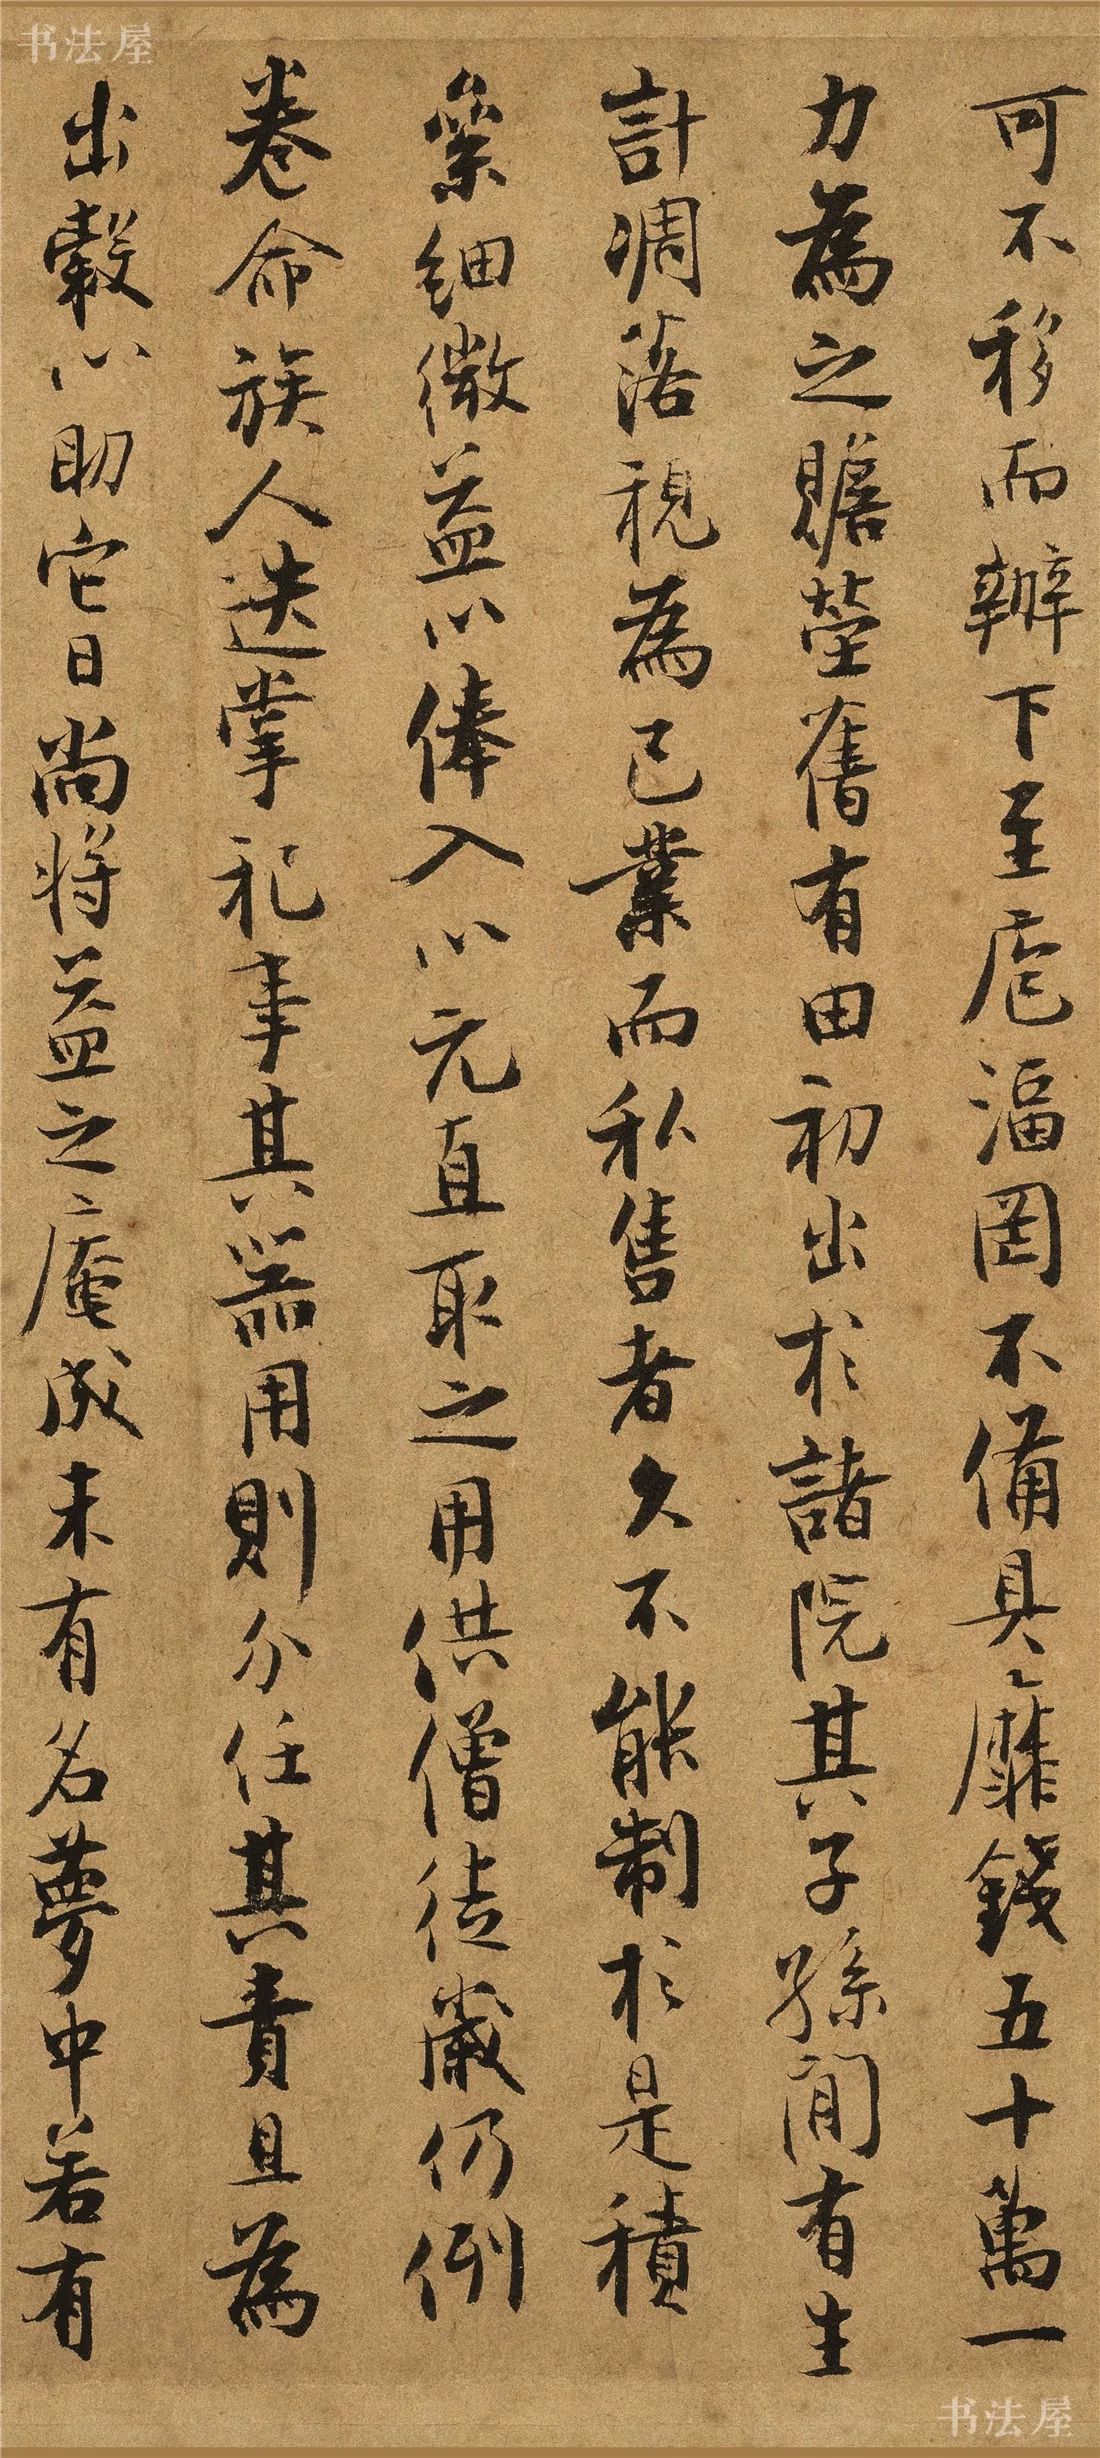 书法屋
可不移而辦下至庖湢罔不備具靡錢五十萬一
力為之贍塋舊有田初出於諸院其子孫間有生
計凋落視為己業而私售者久不能制於是積
絫細微益以俸入以元直取之用供僧徒歲仍例
卷命族人迭掌祀事其器用則分任其責且為
出穀以助它日尚將益之庵成未有名夢中若有
书法屋